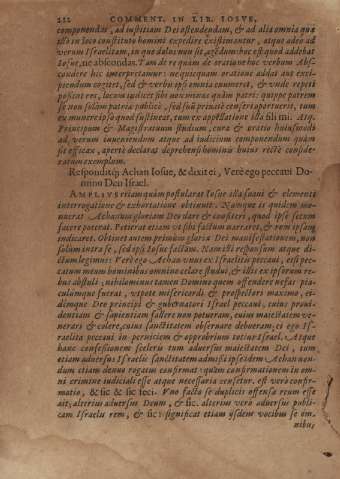 212 COMMENT. IN LIB. IOSVE,
componendas, ad iustitiam Dei ostendendam, & ad alia omnia quæ
illo in loco constituto homini expedire existimantur, atque adeo ad
verum Israelitam, in quo dolus non sit, agendum: hoc est quod addebat
Iosue, ne abscondas. Tam de re quàm de oratione hoc verbum Abs-
condere hic interpretamur: ne quicquam oratione addat aut exci-
piendum cogitet, sed & verbis ipsis omnia enumeret, & vnde repeti
possent res, locum indicet sibi maximoque quàm patri: quippe patrem
se non solùm patriæ publicè, sed suū priuatè censeri oportuerit, tum
ex munere ipso quod sustineat, tum ex appellatione illa fili mi. Atq.
Principum & Magistratuum studium, cura & oratio huiusmodi
ad verum inueniendum atque ad iudicium componendum quàm
sit efficax, apertè declarat deprehensi hominis huius rectè conside-
ratum exemplum.
Responditq; Achan Iosue, & dixit ei, Verè ego peccaui Do-
mino Deo Israel.
AMPLIVS etiam quàm postularat Iosue illa suaui & clementi
interrogatione & exhortatione obtinuit. Nunque is quidem mo-
nuerat Achanum gloriam Deo dare & confiteri, quod ipse secum
facere poterat. Petierat etiam vt sibi factum narraret, & rem ipsam
indicaret. Obtinet autem primùm gloriæ Dei manifestationem, non
solùm intra se, sed ipsi Iosue factam. Nam est responsum atque di-
ctum legimus: Verè ego Achan vnus ex Israelitis peccaui, etsi pec-
catum meum hominibus omnino celare studui, & illis ex ipsorum re-
bus abstuli: nihilominus tamen Domino quem offendere nefas pia-
culumque fuerat, vtpote misericordi & prospectori maximo, ei-
dimque Deo principi & gubernatori Israel peccaui, cuius proui-
dentiam & sapientiam fallere non poteram, cuius maiestatem ve-
nerari & colere, cuius sanctitatem obseruare debueram; ei ego Is-
raelita peccaui in perniciem & opprobrium totius Israel. Atque
hanc confessionem sceleris tum aduersus maiestatem Dei, tum
etiam aduersus Israelis sanctitatem admissi ipse idem Achan non-
dum etiam denuo rogatus confirmat: quàm confirmationem in om-
ni crimine iudiciali esse atque necessaria censetur. est verò confir-
matio, &sic & sic feci. Vno facto se duplicis offensæ reum esse
ait: alterius aduersus Deum, & sic. alterius verò aduersus publi-
cam Israelis rem, & sic: significat etiam ijsdem vocibus se om-
nibus,